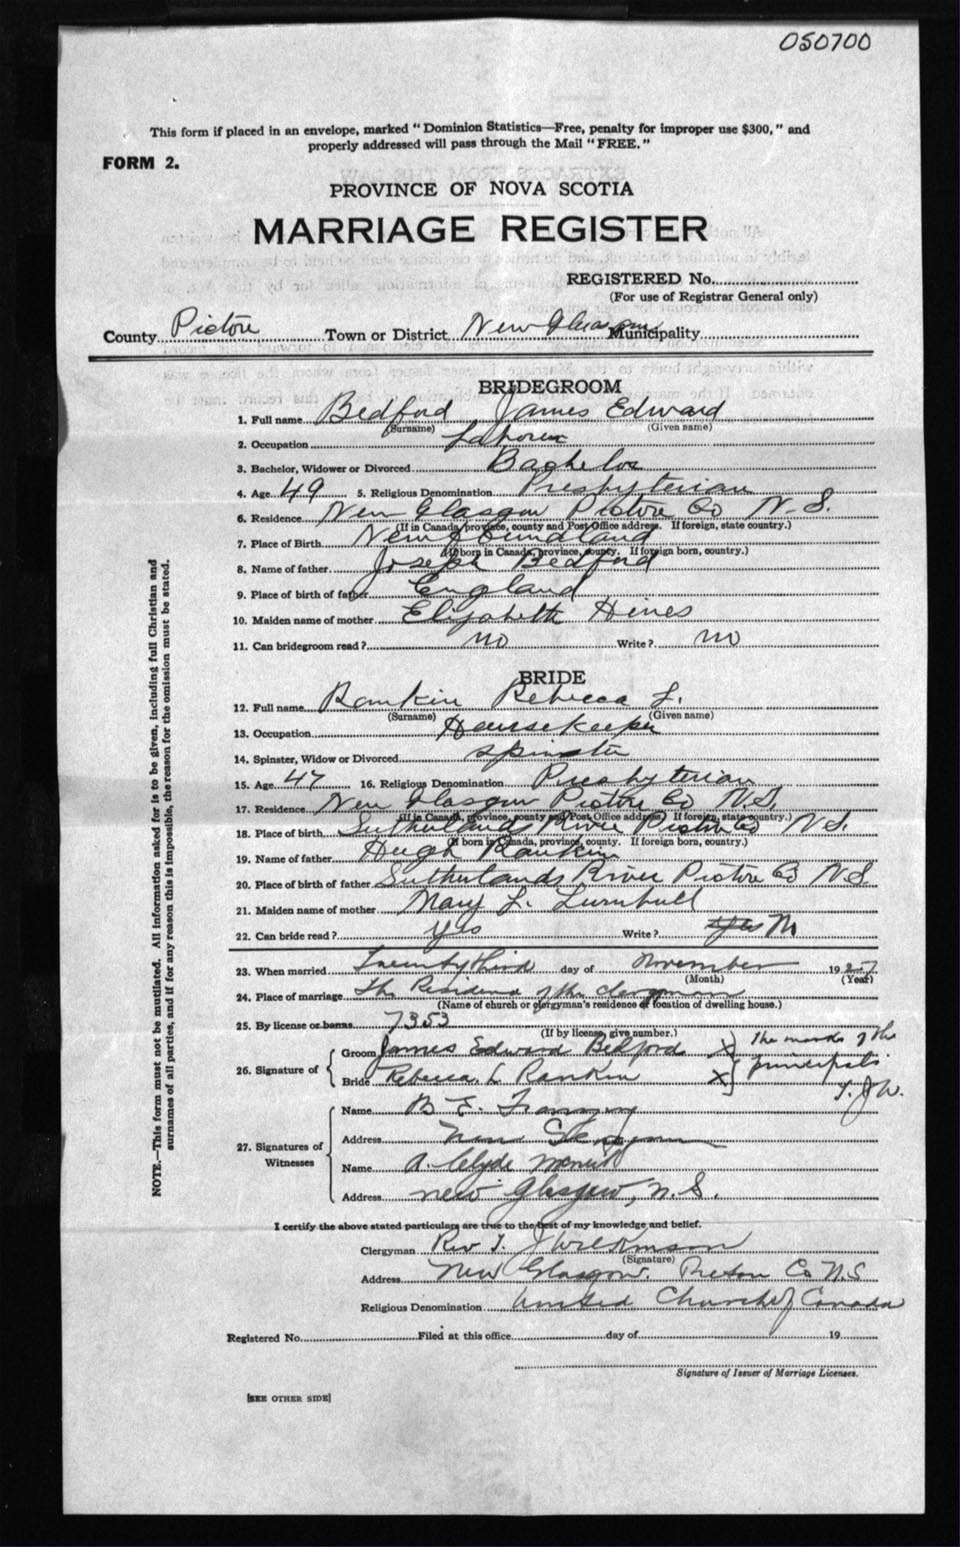 050700
This form if placed in an envelope, marked "Dominion Statistics—Free, penalty for improper use $300," and
properly addressed will pass through the Mail "FREE."
FORM 2.
PROVINCE OF NOVA SCOTIA
MARRIAGE REGISTER
REGISTERED No.
(For use of Registrar General only)
County Pictou Town or District New Glasgow Municipality
BRIDEGROOM
1. Full name Bedford James Edward
(Surname) (Given name)
2. Occupation Laborer
3. Bachelor, Widower or Divorced Bachelor
4. Age 49 5. Religious Denomination Presbyterian
6. Residence New Glasgow Pictou Co N.S.
(If in Canada, province, county and Post Office address. If foreign, state country.)
7. Place of Birth Newfoundland
(If born in Canada, province, county. If foreign born, country.)
8. Name of father Joseph Bedford
9. Place of birth of father England
10. Maiden name of mother Elizabeth Hines
11. Can bridegroom read? no Write? no
BRIDE
12. Full name Rankin Rebecca L.
(Surname) (Given name)
13. Occupation Housekeeper
14. Spinster, Widow or Divorced spinster
15. Age 47 16. Religious Denomination Presbyterian
17. Residence New Glasgow Pictou Co N.S.
(If in Canada, province, county and Post Office address. If foreign, state country.)
18. Place of birth Sutherlands River Pictou Co N.S.
(If born in Canada, province, county. If foreign born, country.)
19. Name of father Hugh Rankin
20. Place of birth of father Sutherlands River Pictou Co N.S.
21. Maiden name of mother Mary L. Turnbull
22. Can bride read? Yes Write? Yes No
23. When married Twenty third day of November 1927
(Month) (Year)
24. Place of marriage the Residence of the clergyman
(Name of church or clergyman's residence or location of dwelling house.)
25. By license or banns 7353
(If by license, give number.)
26. Signature of
Groom James Edward Bedford X
Bride Rebecca L Rankin X
the marks of the
principals
T.J.W.
27. Signatures of
Witnesses
Name B E.
Address New Glasgow
Name A. Clyde
Address New Glasgow, N.S.
I certify the above stated particulars are true to the best of my knowledge and belief.
Clergyman Rev T. J Wilkinson
(Signature)
Address New Glasgow. Pictou Co N.S
Religious Denomination United Church of Canada
Registered No. Filed at this office day of 19
Signature of Issuer of Marriage Licenses.
[SEE OTHER SIDE]
NOTE.—This form must not be mutilated. All information asked for is to be given, including full Christian and
surnames of all parties, and if for any reason this is impossible, the reason for the omission must be stated.